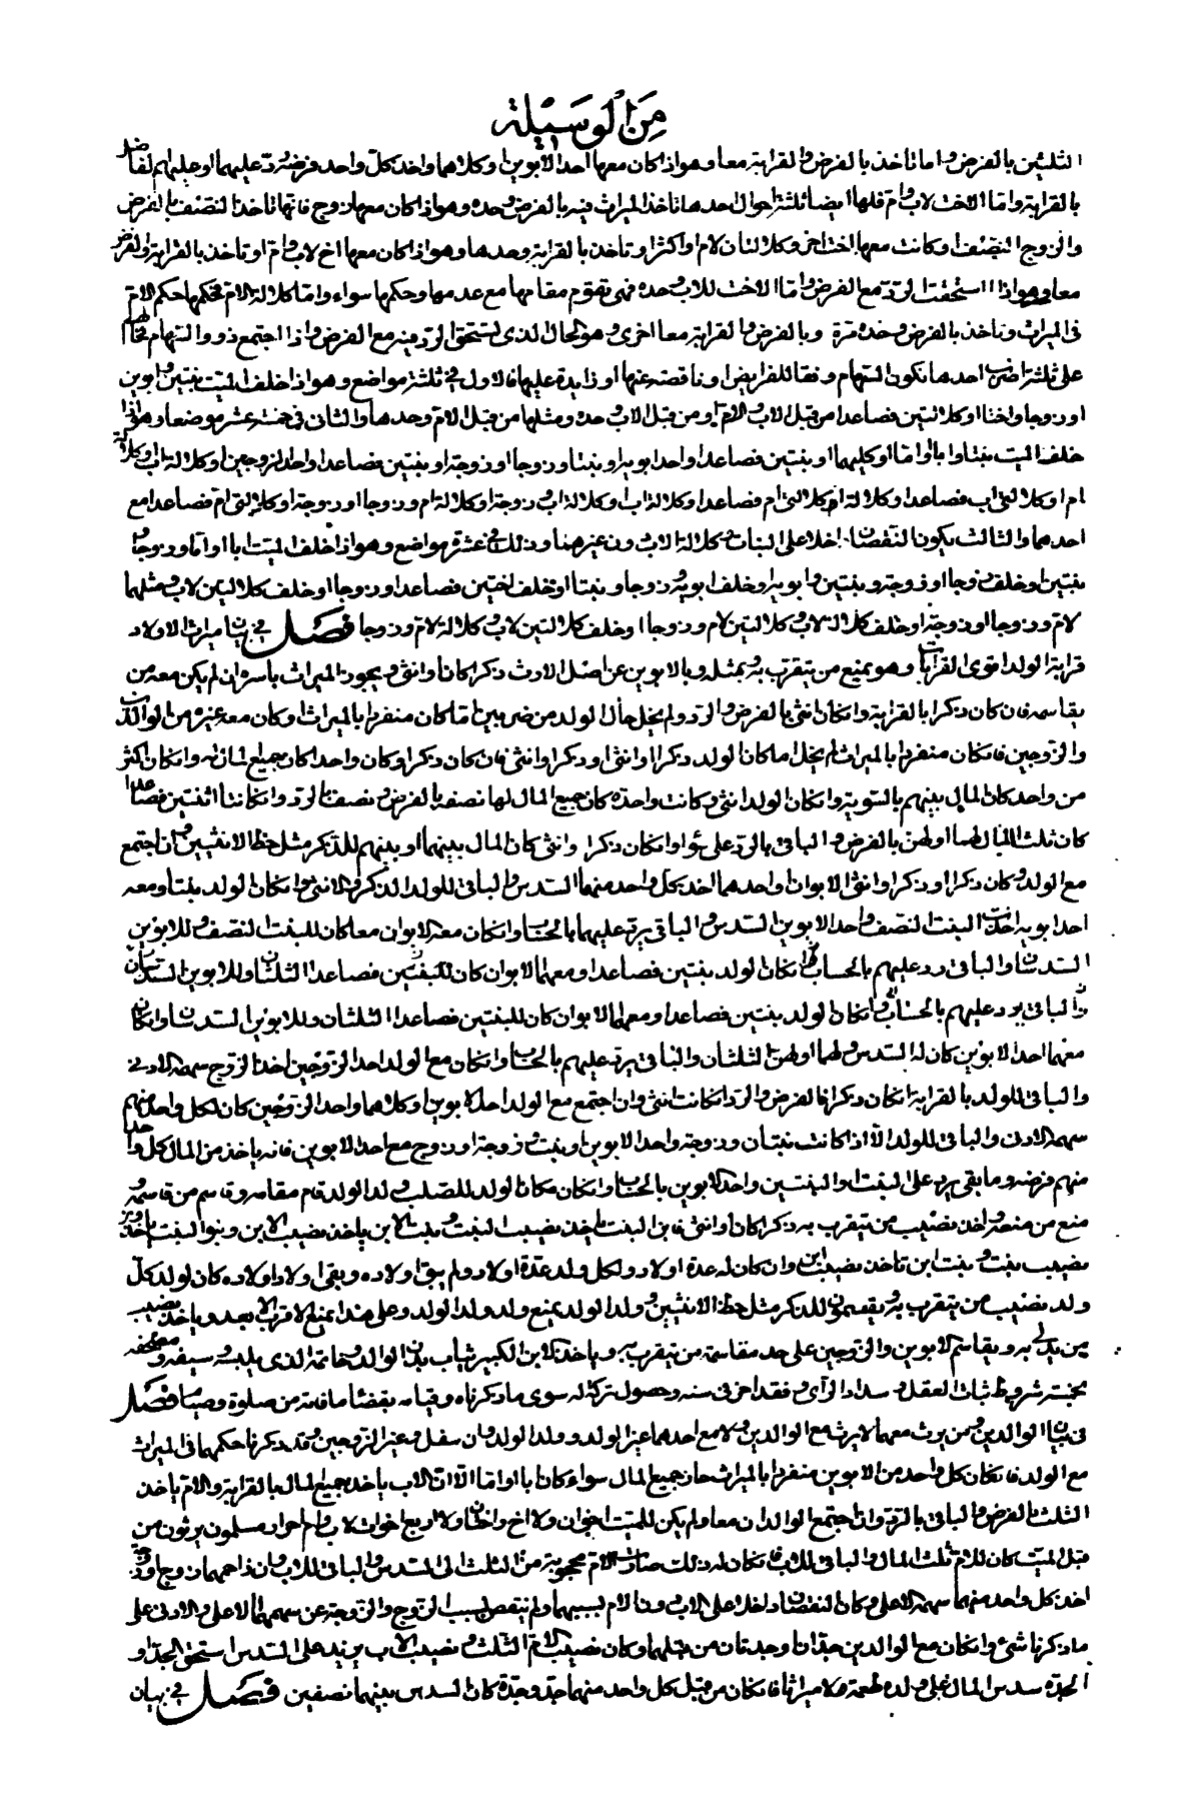 مِنَ الوَسيْلة
الثلثين بالفرض واما تاخذ بالفرض والقرابة معا وهو اذا كان معها احد الابوين او كلاهما واخذ كل واحد فرضه ورد عليهما او عليهم الفاضل
بالقرابة واما الاخت لاب وام فلها ايضا ثلثة احوال احدها تاخذ الميراث فيه بالفرض وحده وهو اذا كان معها زوج فانها تاخذ النصف بالفرض
والزوج النصف او كانت معها اخت اخرى وكلالتان لام او اكثر او تاخذ بالقرابة وحدها وهو اذا كان معها اخ لاب وام او تاخذ بالقرابة والفرض
معا وهو اذا استحقت الرد مع الفرض واما الاخت للاب وحده فهي تقوم مقامها مع عدمها وحكمها سواء واما كلالة الام فحكمها حكم الام
في الميراث وتاخذ بالفرض وحده مرة وبالفرض والقرابة معا اخرى وهو الحال الذي تستحق الرد فيه مع الفرض واذا اجتمع ذوو السهام
على ثلثة اضرب احدها تكون السهام وفقا للفرايض او ناقصة عنها او زايدة عليها فالاول في ثلثة مواضع وهو اذا خلف الميت بنتين وابوين
او زوجا واختا او كلالتين فصاعدا من قبل الاب والام او من قبل الاب وحده ومثلها من قبل الام وحدها والثاني في خمسة عشر موضعا وهو اذا
خلف الميت بنتا وابا واما او كليهما او بنتين فصاعدا واحد ابويه او بنتا وزوجا او زوجة او بنتين فصاعدا واحد الزوجين او كلالة اب وكلالة
ام او كلالتي اب فصاعدا وكلالة ام او كلالتي ام فصاعدا وكلالة اب او كلالة اب وزوجة او كلالة ام وزوجا او زوجة او كلالتي ام فصاعدا مع
احدهما والثالث يكون النقصان داخلا على البنات وكلالة الاب دون غيرهما وذلك في عشرة مواضع وهو اذا خلف الميت ابا او اما وزوجا و
بنتين او خلف زوجا او زوجة وبنتين وابويه او خلف ابويه وزوجا وبنتا او خلف اختين فصاعدا وزوجا او خلف كلالتين لاب ومثلهما
لام وزوجا او زوجة او خلف كلالة لاب وكلالتين لام وزوجا او خلف كلالتين لاب وكلالة لام وزوجا فصل في بيان ميراث الاولاد
قرابة الولد اقوى القرابات وهو يمنع من يتقرب به وبمثله وبالابوين عن اصل الارث ذكرا كان او انثى ويجوز الميراث باسره ان لم يكن معه من
يقاسمه فان كان ذكرا بالقرابة وان كان انثى بالفرض والرد ولم يخل حال الولد من ضربين اما كان منفردا بالميراث او كان معه غيره من الوالدين
والزوجين فان كان منفردا بالميراث لم يخل اما كان الولد ذكرا او انثى او ذكرا وانثى فان كان ذكرا وكان واحدا كان جميع المال له وان كان اكثر
من واحد كان المال بينهم بالسوية وان كان الولد انثى وكانت واحدة كان جميع المال لها نصفه بالفرض ونصفه بالرد وان كانتا اثنتين فصاعدا
كان ثلثا المال لهما او لهن بالفرض والباقي بالرد على سواء وان كان ذكرا وانثى كان المال بينهما او بينهم للذكر مثل حظ الانثيين وان اجتمع
مع الولد وكان ذكرا او ذكرا وانثى الابوان او احدهما اخذ كل واحد منهما السدس والباقي للولد الذكر والانثى وان كان الولد بنتا ومعه
احد ابويه اخذت البنت النصف واحد الابوين السدس والباقي يرد عليهما بالحساب وان كان معه الابوان معا كان للبنت النصف وللابوين
السدسان والباقي رد عليهم بالحساب وان كان الولد بنتين فصاعدا ومعهما الابوان كان للبنتين فصاعدا الثلثان وللابوين السدسان
والباقي يرد عليهم بالحساب وان كان الولد بنتين فصاعدا ومعهما الابوان كان للبنتين فصاعدا الثلثان وللابوين السدسان وان كان
معهما احد الابوين كان له السدس ولهما او لهن الثلثان والباقي يرد عليهم بالحساب وان كان مع الولد احد الزوجين اخذ الزوج سهمه الادنى
والباقي للولد بالقرابة ان كان ذكرا فالفرض والرد ان كانت انثى وان اجتمع مع الولد احد الابوين او كلاهما واحد الزوجين كان لكل واحد منهم
سهمه الادنى والباقي للولد الا اذا كانت بنتان وزوجة واحد الابوين او بنت وزوجة او زوج مع احد الابوين فانه ياخذ من المال كل واحد
منهم فرضه وما بقي يرد على البنت او البنتين واحد الابوين بالحساب وان كان مكان الولد للصلب ولد الولد قام مقامه وقاسم من قاسمه و
منع من منعه واخذ نصيب من يتقرب به ذكرا كان او انثى فابن البنت ياخذ نصيب البنت وبنت الابن ياخذ نصيب الابن وبنوا البنت ياخذون
نصيب بنت وبنت ابن تاخذ نصيب ابن وان كان له عدة اولاد ولكل ولد عدة اولاد ولم يبق اولاده وبقى اولاد اولاده كان لولد كل
ولد نصيب من يتقرب به ويقسمون للذكر مثل حظ الانثيين وولد الولد يمنع ولد ولد الولد وعلى هذا يمنع الاقرب الابعد وياخذ نصيب
من يدلي به ويقاسم الابوين والزوجين على حد مقاسمة من يتقرب به وياخذ الابن الكبير ثياب بدن الوالد وخاتمه الذي يلبسه وسيفه ومصحفه
بخمسة شروط ثبات العقل وسداد الرآي وفقد اخر في سنه وحصول تركة له سوى ما ذكرناه وقيامه بقضاء ما فاته من صلوة وصيام فصل
في بيان الوالدين ومن يرث معهما لا يرث مع الوالدين ولا مع احدهما غير الولد وولد الولد وان سفل وغير الزوجين وقد ذكرنا حكمهما في الميراث
مع الولد فان كان كل واحد من الابوين منفردا بالميراث حاز جميع المال سواء كان ابا او اما الا ان الاب ياخذ جميع المال بالقرابة والام ياخذ
الثلث بالفرض والباقي بالرد وان اجتمع الوالدان معا ولم يكن للميت اخوان ولا اخ واختان ولا اربع اخوات لاب وام احرار مسلمون يرثون من
قبل الميت كان للام ثلث المال والباقي للاب فان كان له ذلك صارت الام محجوبة من الثلث الى السدس والباقي للاب وان زاحمهما زوج او زوجة
اخذ كل واحد منهما سهمه الاعلى وكان النقصان داخلا على الاب دون الام لسببهما ولم ينقص بسبب الزوج والزوجة عن سهمهما الاعلى والادنى على
ما ذكرنا شئ وان كان مع الوالدين جدان او جدتان من قبلهما وكان نصيب الام الثلث ونصيب الاب يزيد على السدس استحق الجد او
الجدة سدس المال على ولده طعمة لا ميراثا فان كان من قبل كل واحد منهما جد وجدة كان السدس بينهما نصفين فصل في بيان